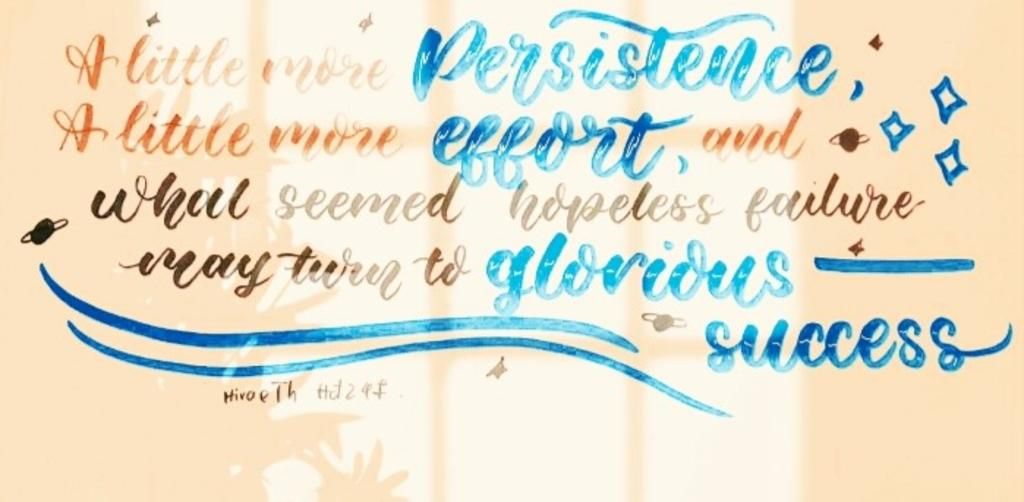 A little more Persistence,
A little more effort, and
what seemed hopeless failure
may turn to glorious
success